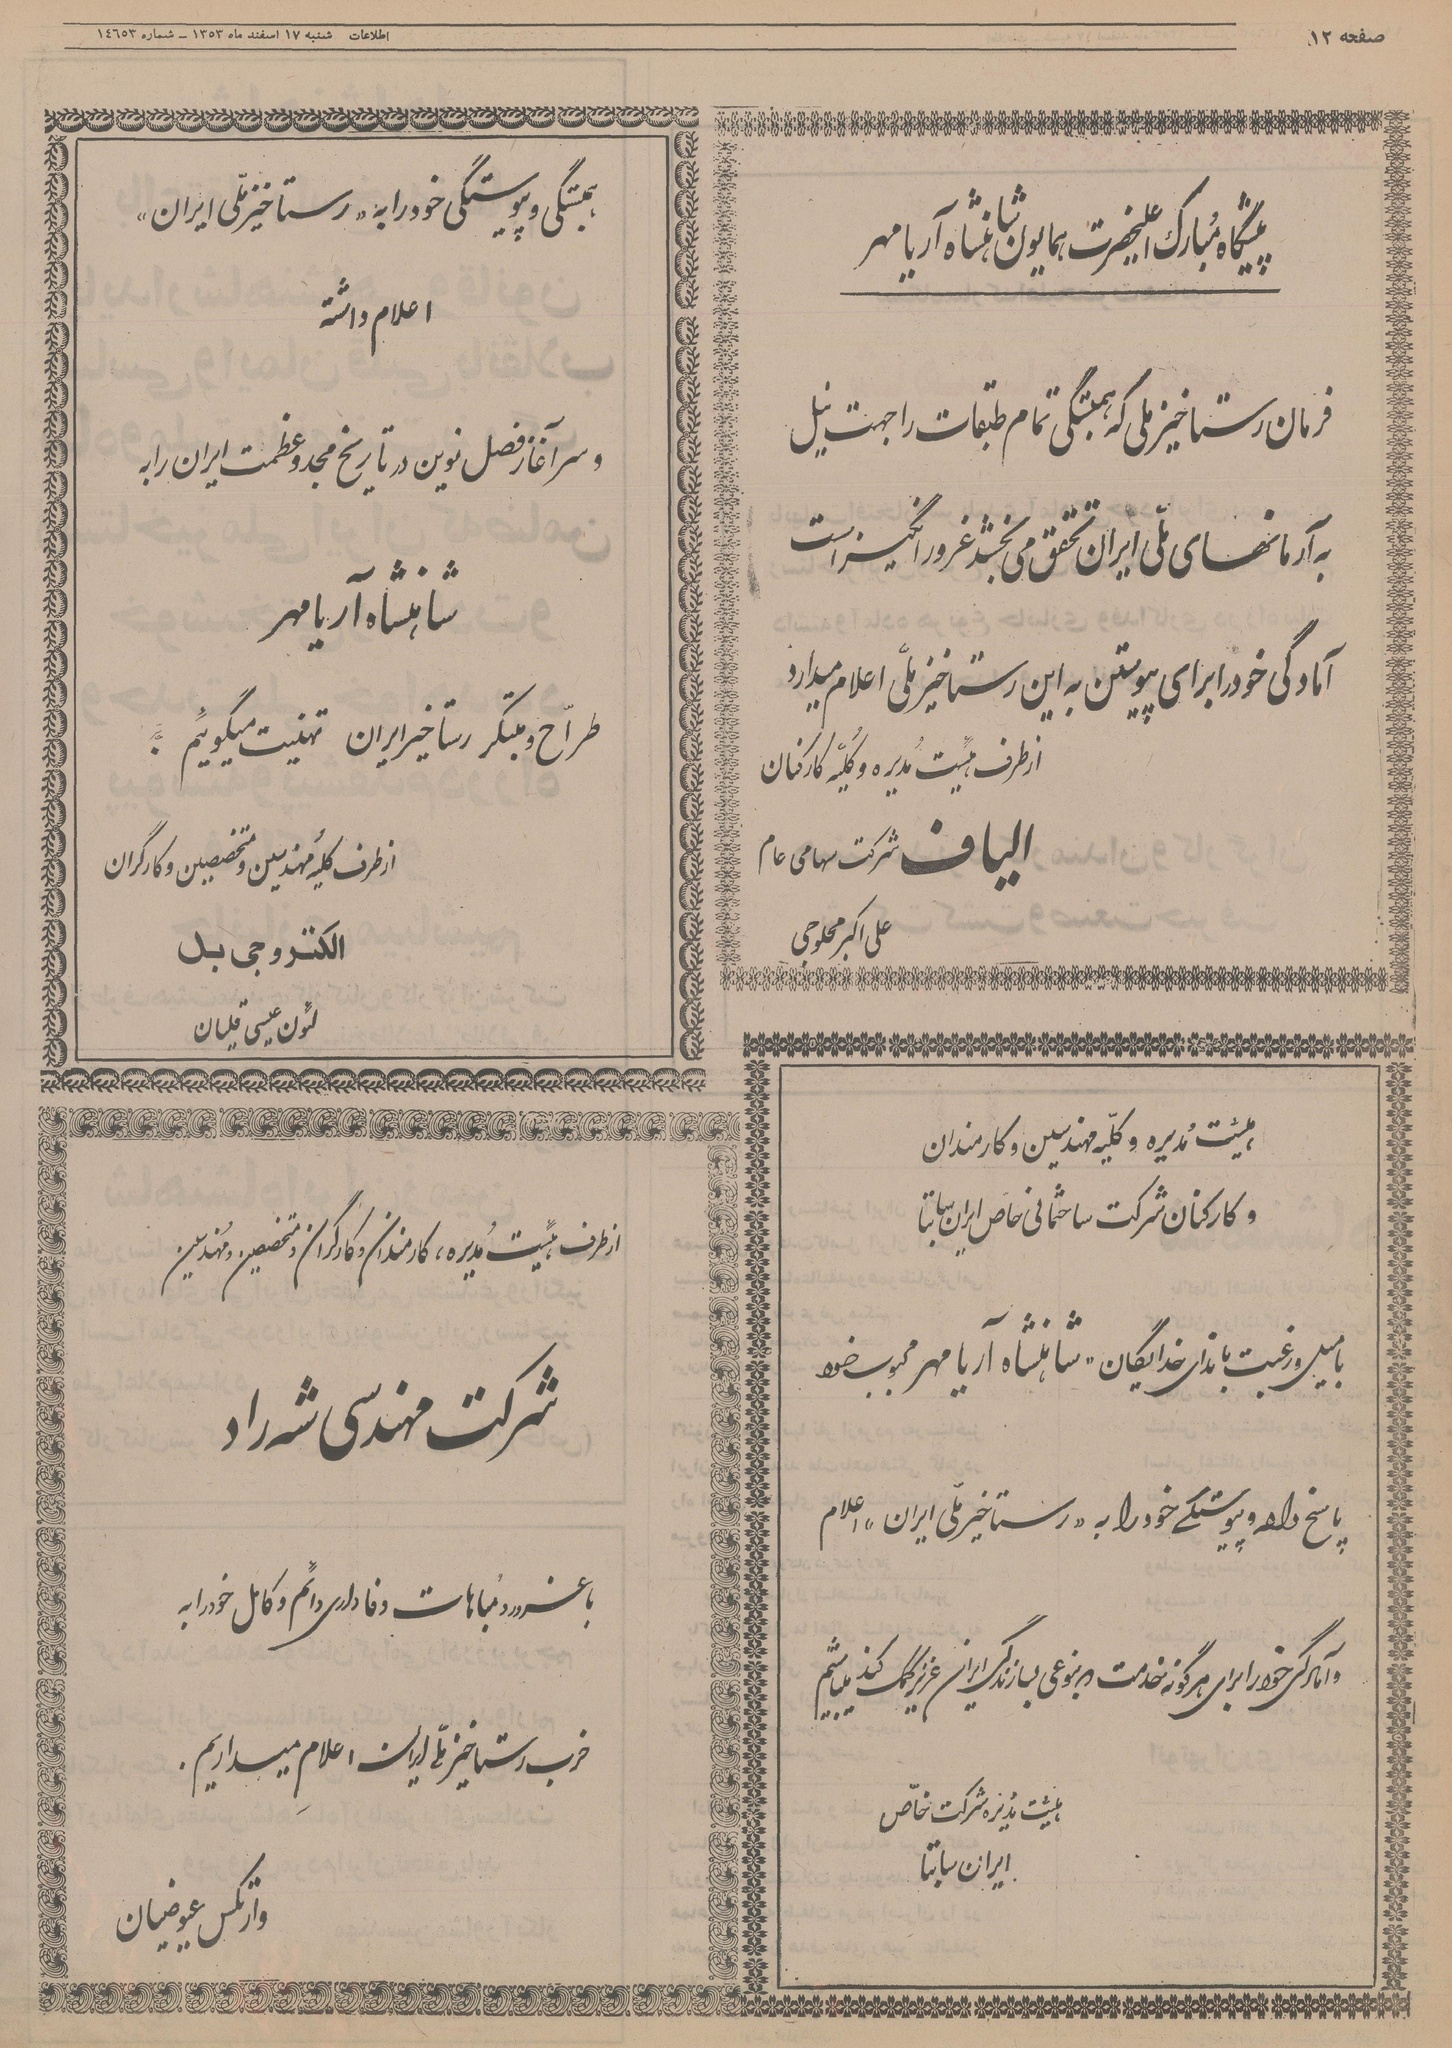 صفحه ۱۲
اطلاعات شنبه ۱۷ اسفند ماه ۱۳۵۳ ــ شماره ۱۴۶۵۳
پیشگاه مبارک اعلیحضرت همایون شاهنشاه آریامهر
فرمان رستاخیز ملی که همبستگی تمام طبقات را جهت نیل
به آرمانهای ملّی ایران تحقق می‌بخشد غرورانگیز است
آمادگی خود را برای پیوستن به این رستاخیز ملّی اعلام میدارد
از طرف هیئت مُدیره و کلیّه کارکنان
الیاف شرکت سهامی عام
علی اکبر محلوجی
همبستگی و پیوستگی خود را به «رستاخیز ملّی ایران»
اعلام داشته
و سرآغاز فصل نوین در تاریخ مجد و عظمت ایران را به
شاهنشاه آریامهر
طرّاح و مبتکر رستاخیز ایران تهنیت میگوئیم :
از طرف کلیّه مهندسین و متخصصین و کارگران
الکترو جی بل
لئون عیسی قلیان
هیئت مُدیره و کلّیه مهندسین و کارمندان
و کارکنان شرکت ساختمانی خاص ایران
با میل و رغبت با ندای خدایگان «شاهنشاه آریامهر محبوب خود
پاسخ داده و پیوستگی خود را به «رستاخیز ملّی ایران» اعلام
و آمادگی خود را برای هرگونه خدمت که بنوعی بسازندگی ایران عزیز کمک کند میباشیم
هیئت مُدیره شرکت خاّص
ایران
از طرف هیئت مُدیره، کارمندان و کارگران و متخصصین و مهندسین
شرکت مهندسی شه راد
با غرور و مُباهات وفاداری دائم و کامل خود را به
حزب رستاخیز ملّی ایران اعلام میداریم.
وارتکس عیوضیان